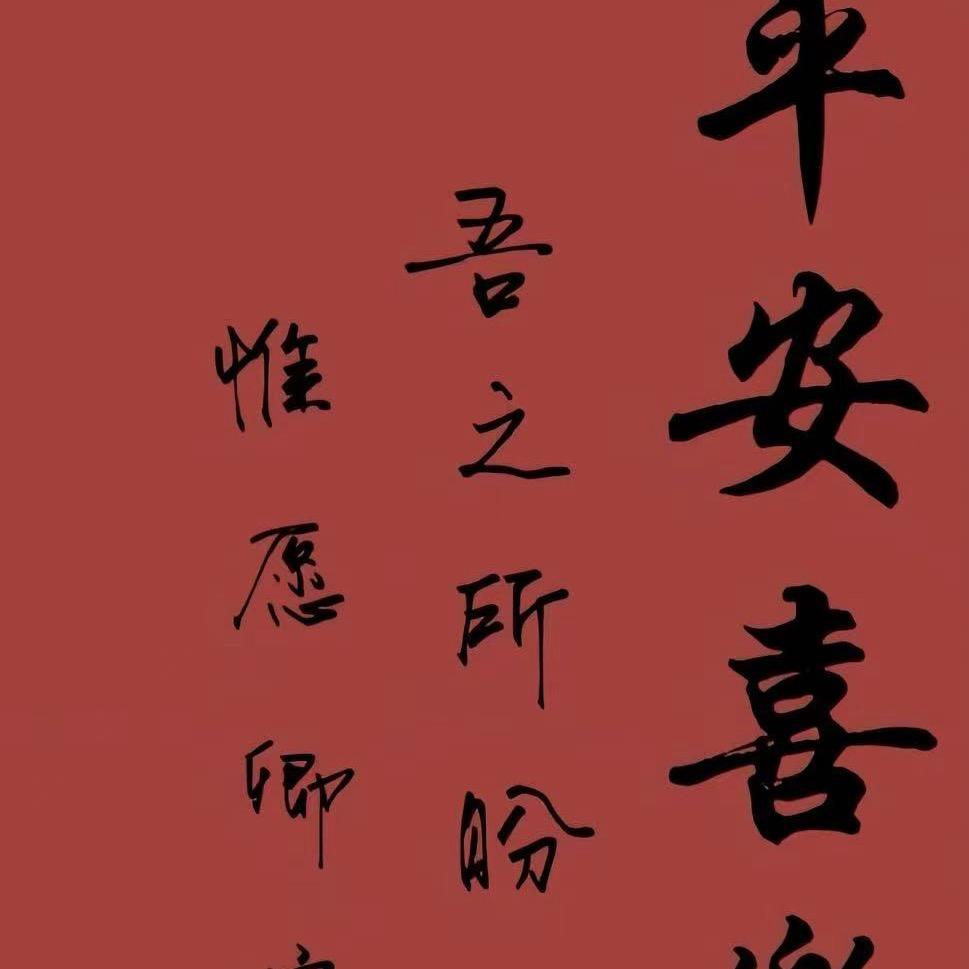 平安喜
吾之所盼
惟愿卿